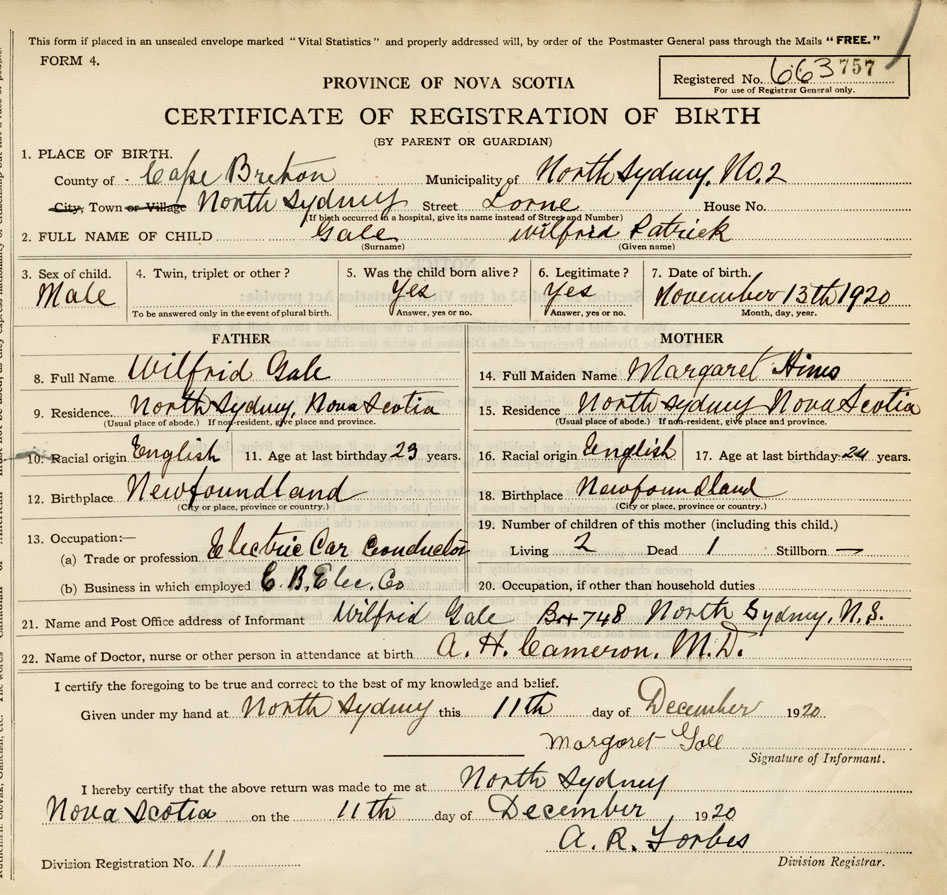 This form if placed in an unsealed envelope marked "Vital Statistics" and properly addressed will, by order of the Postmaster General pass through the Mails "FREE."
FORM 4.
Registered No. 663757
For use of Registrar General only.
PROVINCE OF NOVA SCOTIA
CERTIFICATE OF REGISTRATION OF BIRTH
(BY PARENT OR GUARDIAN)
1. PLACE OF BIRTH.
County of Cape Breton Municipality of North Sydney. No. 2
City, Town or Village North Sydney Street Lorne House No.
(If birth occurred in a hospital, give its name instead of Street and Number)
2. FULL NAME OF CHILD Gale Wilfrid Patrick
(Surname) (Given name)
3. Sex of child. 4. Twin, triplet or other? 5. Was the child born alive? 6. Legitimate? 7. Date of birth.
Male Yes Yes November 13th 1920
To be answered only in the event of plural birth. Answer, yes or no. Answer, yes or no. Month, day, year.
FATHER
8. Full Name Wilfrid Gale
9. Residence. North Sydney, Nova Scotia
(Usual place of abode.) If non-resident, give place and province.
10. Racial origin English 11. Age at last birthday 23 years.
12. Birthplace Newfoundland
(City or place, province or country.)
13. Occupation:—
(a) Trade or profession Electric Car Conductor
(b) Business in which employed C. B. Elec. Co
MOTHER
14. Full Maiden Name Margaret Hines
15. Residence North Sydney Nova Scotia
(Usual place of abode.) If non-resident, give place and province.
16. Racial origin English 17. Age at last birthday 24 years.
18. Birthplace Newfoundland
(City or place, province or country.)
19. Number of children of this mother (including this child.)
Living 2 Dead 1 Stillborn —
20. Occupation, if other than household duties
21. Name and Post Office address of Informant Wilfrid Gale Box 748 North Sydney, N.S.
22. Name of Doctor, nurse or other person in attendance at birth A. H. Cameron. M.D.
I certify the foregoing to be true and correct to the best of my knowledge and belief.
Given under my hand at North Sydney this 11th day of December 1920
Margaret Gale
Signature of Informant.
I hereby certify that the above return was made to me at North Sydney
Nova Scotia on the 11th day of December 1920
A. R. Forbes
Division Registration No. 11 Division Registrar.